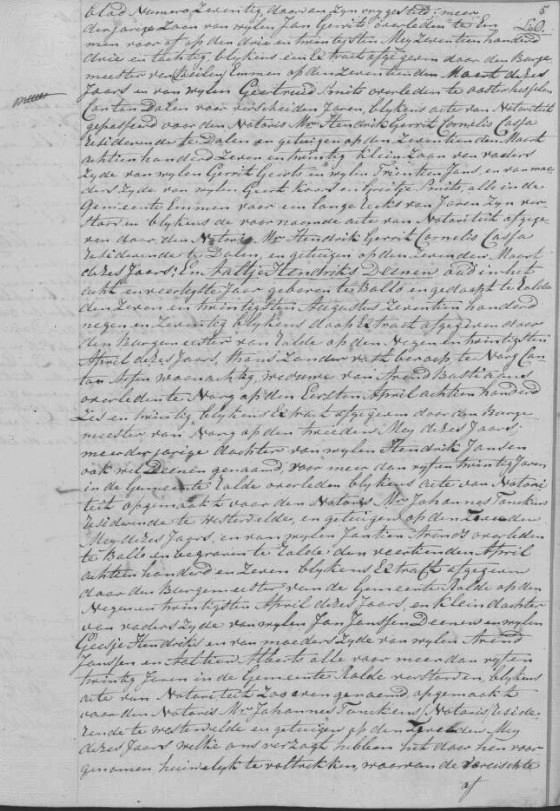 blad Numero Zeventig, daar aan Zyn vygestede meer
derjarige Zoon van wylen Jan Gerrits overleden te Em
men voor af op den drie en twintigsten Mey Zeventien honderd
drie en tachtig, blykens een Extract afgegeven door den Burge
meester van Emmen op den Zeventienden Maart dezes
Jaars en van wylen Geertruid Smits overleden te oosterhesselen
Canton Dalen voor Jaren, blykens acte van Notoriteit
gepasseerd voor den Notaris Mr Hendrik Gerrit Cornelis Cassa
residerende te Dalen en getuigen op den Zeventienden Maart
achtien honderd Zeven en twintig Klein Zoon van vaders
Zyde van wylen Gerrit Geerts en wylen Trientien Jans, en van moe
ders Zyde van wylen Geert Kroes en Smits, alle in de
Gemeente Emmen voor een lange reeks van Jaren Zyn ver
storven blykens de voornoemde acte van Notoriteit afgege
ven door den Notaris Mr Hendrik Gerrit Cornelis Cassa
residerende te Dalen en getuigen op den Zevenden Maart
dezes Jaars; En Hendriks Deenen oud in het
acht en veertigste Jaar geboren te Ballo en gedoopt te Rolde
den Zeven en twintigsten Augustus Zeventien honderd
negen en Zeventig blykens doop Extract afgegeven door
den Burgemeester van Rolde op den Negen en twintigsten
April dezes Jaars, thans Zonder vast beroep te Norg Can
ton Assen woonachtig, weduwe van Arend Bastiaans
overleden te Norg op den Eersten April achtien honderd
Zes en twintig blykens Extract afgegeven door den Burge
meester van Norg op den tweeden Mey dezes Jaars;
meerderjarige dochter van wylen Hendrik Jansen
ook wel Deenen genaamd, voor meer dan vyf en twintig Jaren
in de Gemeente Rolde overleden blykens acte van Notori
teit opgemaakt voor den Notaris Mr Johannes Tonckens
residerende te Westervelde, en getuigen op den Tweeden
Mey dezes Jaars, en van wylen Jantien Arends overleden
te Ballo en begraven te Rolde den veertienden April
achtien honderd en Zeven blykens Extract afgegeven
door den Burgemeester van de Gemeente Rolde op den
Negen en twintigsten April dezes Jaars, en Klein dochter
van vaders Zyde van wylen Jan Janssen Deenen en wylen
Geesje Hendriks en van moeders Zyde van wylen Arend
Janssen en Alberts alle voor meer dan vyf en
twintig Jaren in de Gemeente Rolde verstorven, blykens
acte van Notoriteit Zoo even genoemd, opgemaakt
voor den Notaris Mr Johannes Tonckens, Notaris reside
rende te Westervelde en getuigen op den Tweeden Mey
dezes Jaars welke ons verzogt hebben het door hen voor
genomen huwelyk te voltrekken, waar van de vereischte
af